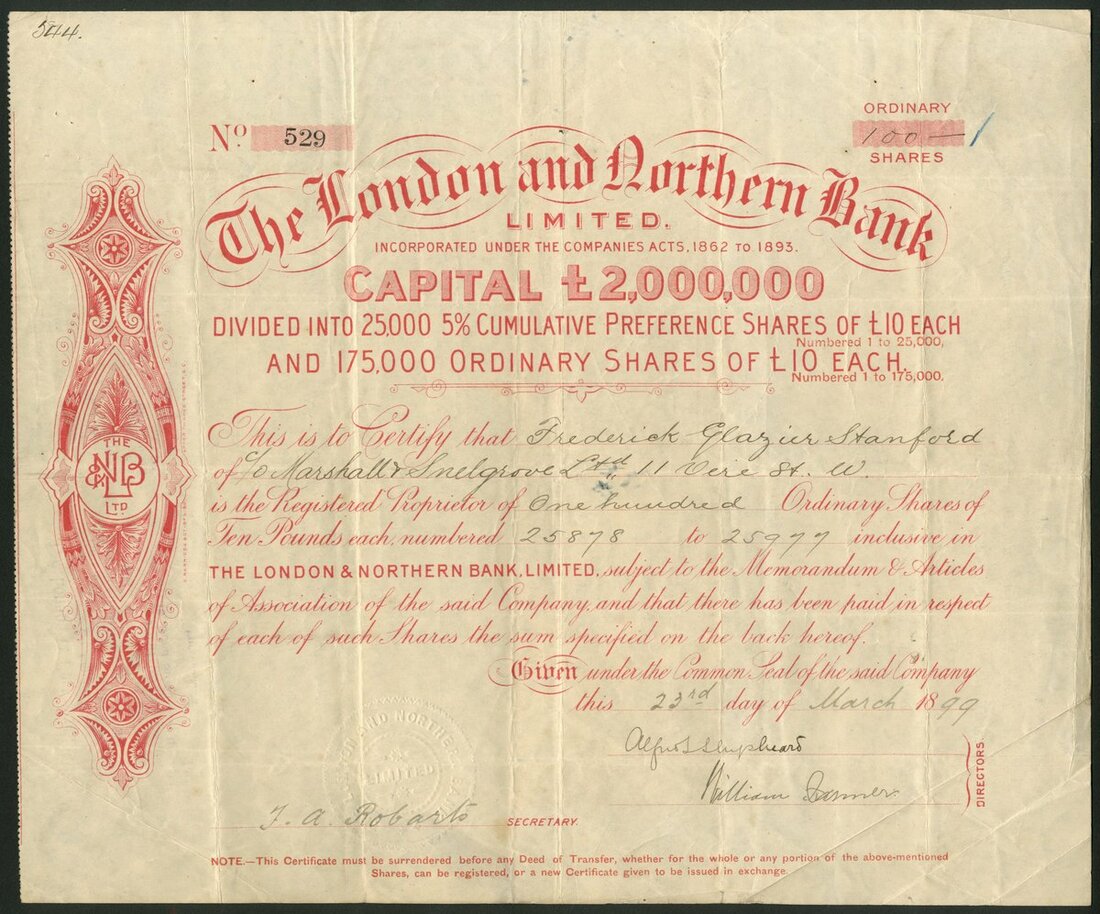 544.
No 529
ORDINARY
100 —
SHARES
The London and Northern Bank
LIMITED.
INCORPORATED UNDER THE COMPANIES ACTS, 1862 TO 1893.
CAPITAL £2,000,000
DIVIDED INTO 25,000 5% CUMULATIVE PREFERENCE SHARES OF £10 EACH
Numbered 1 to 25,000,
AND 175,000 ORDINARY SHARES OF £10 EACH.
Numbered 1 to 175,000.
THE
L&NB
LTD
This is to Certify that Frederick Glazier Stanford
of c/o Marshall & Snelgrove Ltd 11 Vere St. W.
is the Registered Proprietor of One hundred Ordinary Shares of
Ten Pounds each, numbered 25878 to 25977 inclusive in
THE LONDON & NORTHERN BANK, LIMITED, subject to the Memorandum & Articles
of Association of the said Company, and that there has been paid in respect
of each of such Shares the sum specified on the back hereof.
Given under the Common Seal of the said Company
this 23rd day of March 1899
Alfred Shepheard
William Farmer
DIRECTORS.
LIMITED
F. A. Robarts SECRETARY.
NOTE.—This Certificate must be surrendered before any Deed of Transfer, whether for the whole or any portion of the above-mentioned
Shares, can be registered, or a new Certificate given to be issued in exchange.